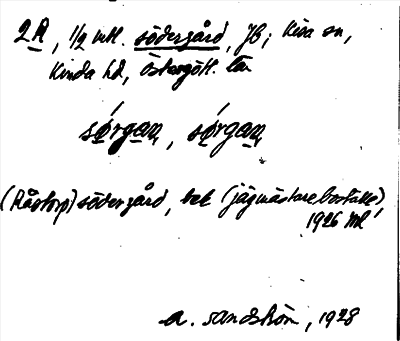 2 R, 1/2 mtl. södergård, JB; Kisa sn,
Kinda hd, Östergötl. län
sǿrgan, sǿrgan
(Råstorp) södergård, bek (jägmästareboställe)
1926 Ml
A. Sandström, 1928